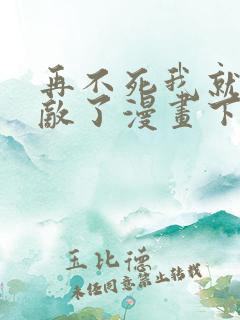 再不死我就
敵了漫畫下
王比德
未经同意禁止转载